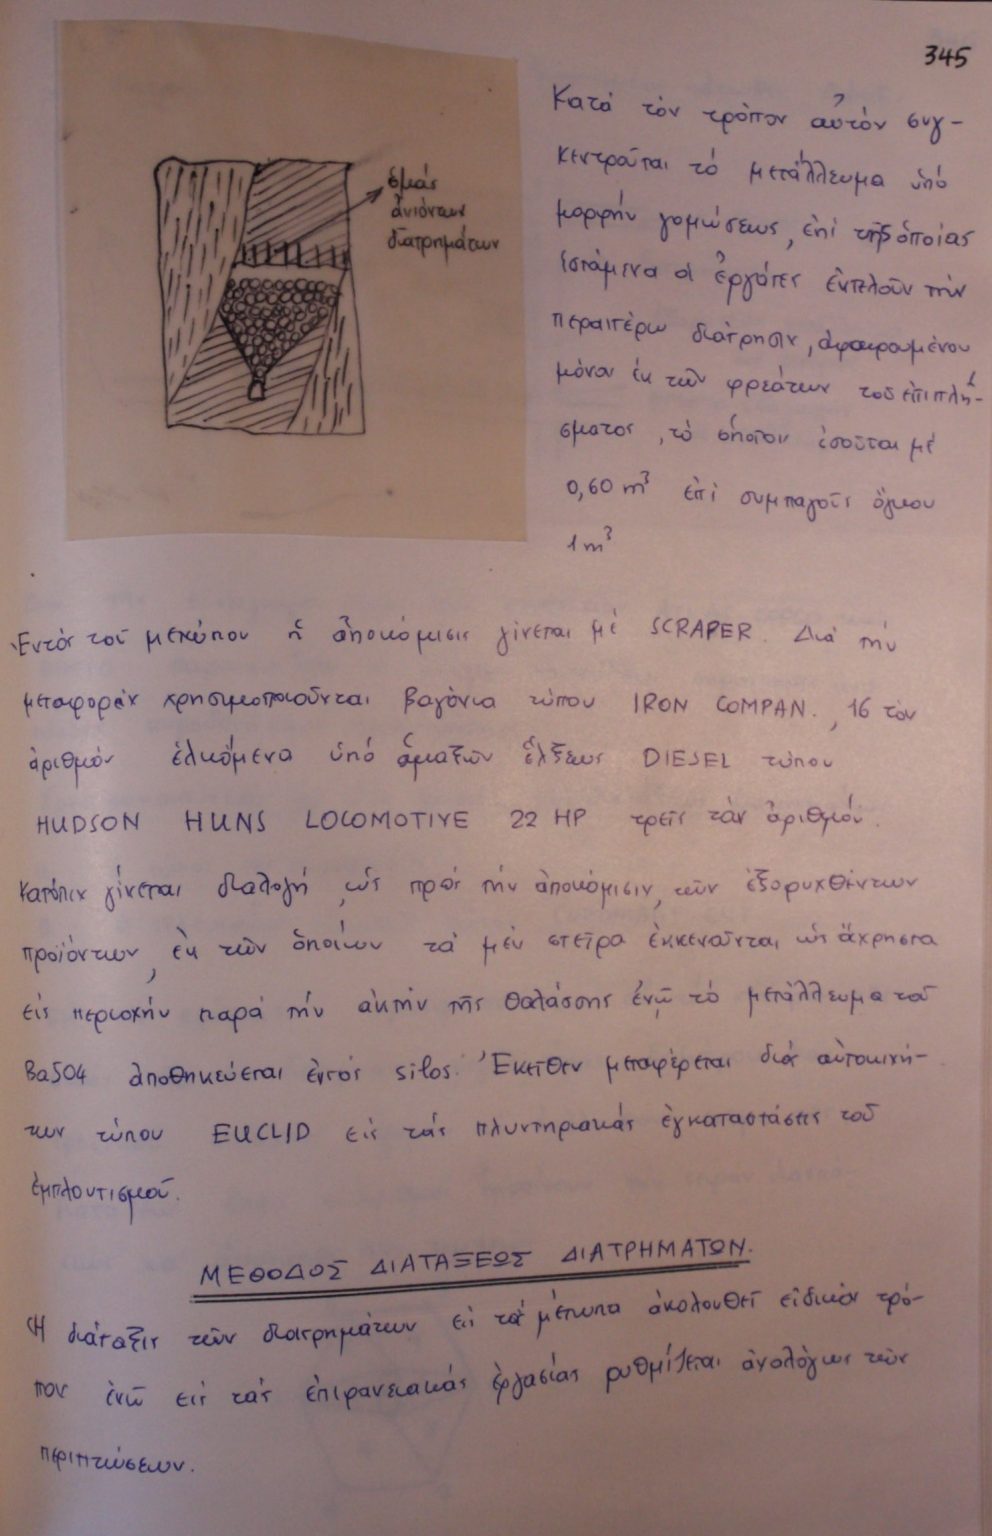 345
ὁμάς
ἀνιόντων
διατρημάτων
Κατά τόν τρόπον αὐτόν συγ-
κεντροῦται τό μετάλλευμα ὑπό
μορφήν γομώσεως, ἐπί τῆς ὁποίας
ἱστάμενα οἱ ἐργάτες ἐκτελοῦν τήν
περαιτέρω διάτρησιν, ἀφαιρουμένου
μόνον ἐκ τῶν φρεάτων τοῦ ἐπιπλή-
σματος, τό ὁποῖον ἰσοῦται μέ
0,60 m³ ἐπί συμπαγοῦς ὄγκου
1 m³
Ἐντός τοῦ μετώπου ἡ ἀποκόμισις γίνεται μέ SCRAPER. Διά τήν
μεταφοράν χρησιμοποιοῦνται βαγόνια τύπου IRON COMPAN., 16 τόν
ἀριθμόν ἑλκόμενα ὑπό ἁμαξῶν ἕλξεως DIESEL τύπου
HUDSON HUNS LOCOMOTIVE 22 HP τρεῖς τόν ἀριθμόν.
Κατόπιν γίνεται διαλογή, ὡς πρός τήν ἀποκόμισιν, τῶν ἐξορυχθέντων
προϊόντων, ἐκ τῶν ὁποίων τά μέν στεῖρα ἐκκενοῦνται ὡς ἄχρηστα
εἰς περιοχήν παρά τήν ἀκτήν τῆς θαλάσσης ἐνῷ τό μετάλλευμα τοῦ
BaSO4 ἀποθηκεύεται ἐντός silos. Ἐκεῖθεν μεταφέρεται διά αὐτοκινή-
των τύπου EUCLID εἰς τάς πλυντηριακάς ἐγκαταστάσεις τοῦ
ἐμπλουτισμοῦ.
ΜΕΘΟΔΟΣ ΔΙΑΤΑΞΕΩΣ ΔΙΑΤΡΗΜΑΤΩΝ.
Ἡ διάταξις τῶν διατρημάτων εἰς τά μέτωπα ἀκολουθεῖ εἰδικόν τρό-
πον ἐνῷ εἰς τάς ἐπιφανειακάς ἐργασίας ρυθμίζεται ἀναλόγως τῶν
περιπτώσεων.